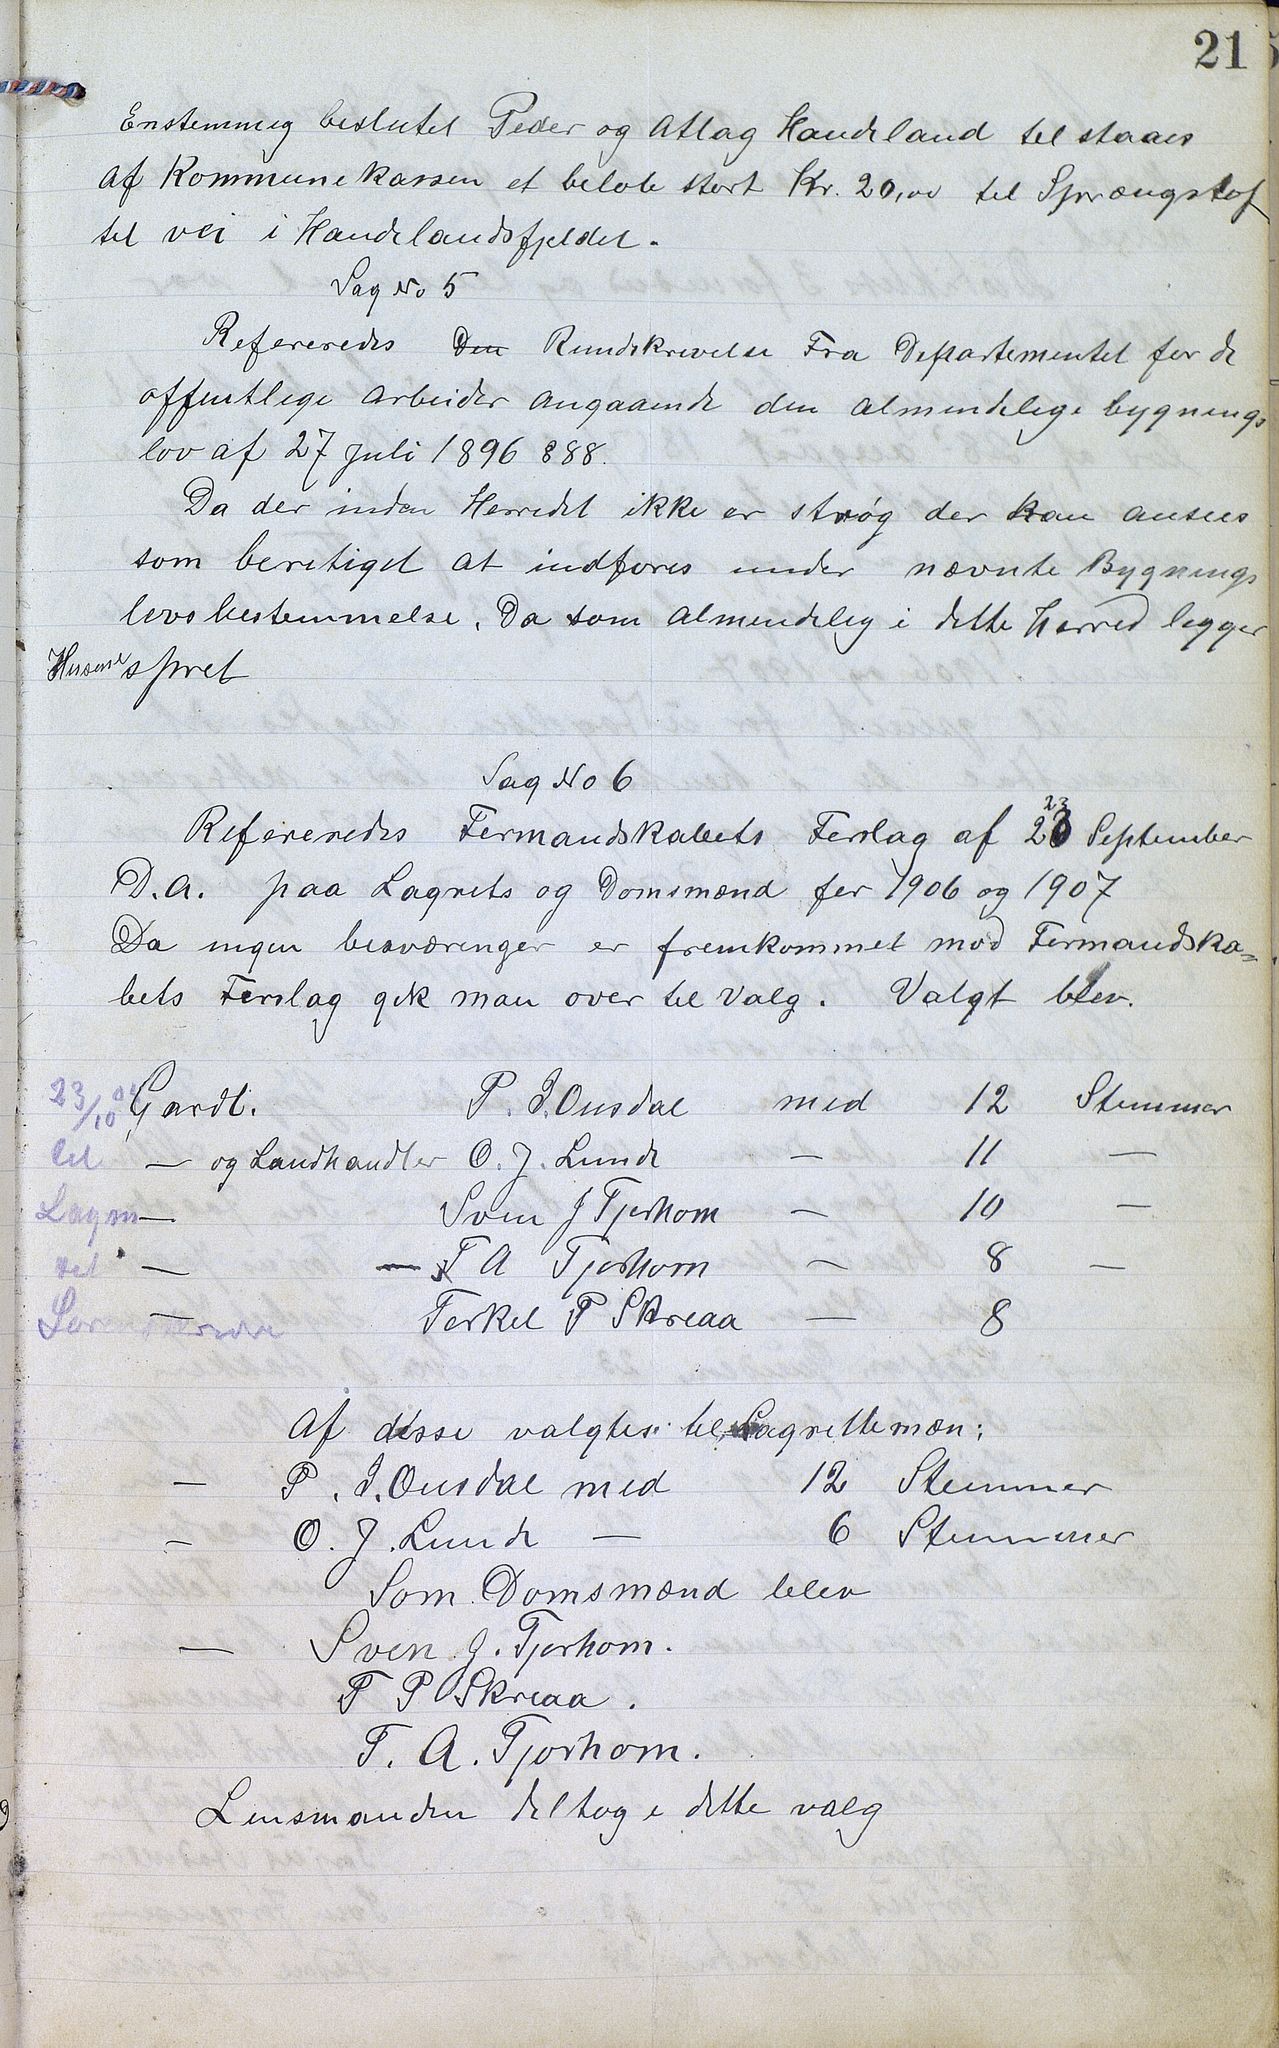 21
Enstemmig beslutet Peder og Atlag Haudeland tel staaes
af Kommunekassen et beløb stort Kr. 20,00 tel Sprængstof
tel vei i Haudelandsfjeldet.
Sag No 5
Refereredes Den Rundskrivelse Fra Departementet for de
offentlege arbeider angaaende den almendelige bygnings
lov af 27 juli 1896 § 88.
Da der inden Herredet ikke er strøg der kan ansees
som beretiget at indføres under nævnte Bygnings
lovs bestemmelse. Da som almendelig i dette Herred legger
Husene spret
Sag No 6
Refereredes Formandskabets Forslag af 23 23 September
D.A. paa Lagrets og Domsmænd for 1906 og 1907
Da ingen besværinger er fremkommet mod Formandska=
bets Forslag gik man over tel Valg. Valgt blev.
23/10 Gardb. P. I. Ousdal med 12 Stemmer
tel — og Landhandler O. J. Lunde — 11 —
Lagm — Sven J Tjorhom — 10 —
— — T A Tjorhom — 8 —
— Torkel P Skreaa — 8
Af disse valgtes tel Lagrettemæn;
— P. I. Ousdal med 12 Stemmer
— O. J. Lunde — 6 Stemmer
Som Domsmænd blev
— Sven J. Tjorhom.
T P Skreaa.
T. A. Tjorhom.
Lensmanden deltog i dette valg